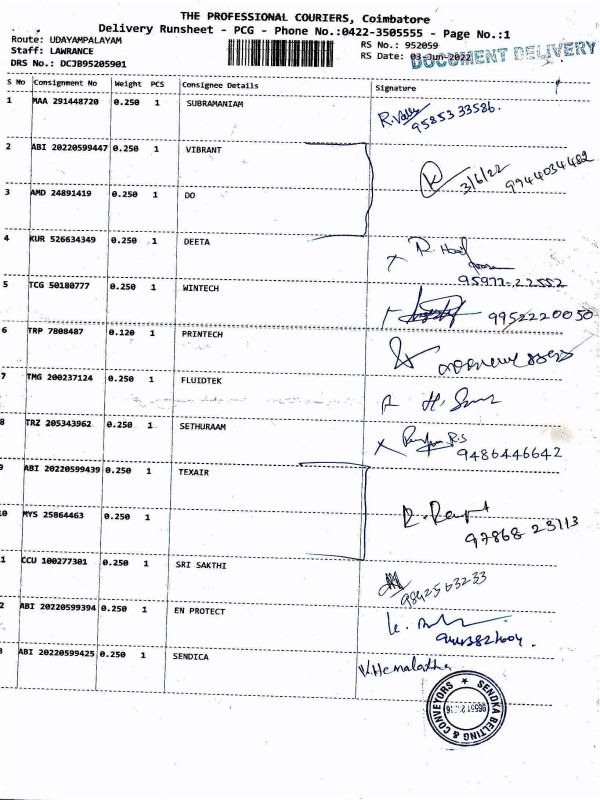 THE PROFESSIONAL COURIERS, Coimbatore
Delivery Runsheet - PCG - Phone No.:0422-3505555 - Page No.:1
Route: UDAYAMPALAYAM
Staff: LAWRANCE
DRS No.: DCJB95205901
RS No.: 952059
RS Date: 03-Jun-2022
DOCUMENT DELIVERY
S No Consignment No Weight PCS Consignee Details Signature
1 MAA 291448720 0.250 1 SUBRAMANIAM
95853 33586.
2 ABI 20220599447 0.250 1 VIBRANT
3/6/22 9944034482
3 AMD 24891419 0.250 1 DO
4 KUR 526634349 0.250 1 DEETA
95977-22552
5 TCG 50180777 0.250 1 WINTECH
9952220050
6 TRP 7808487 0.120 1 PRINTECH
7 TMG 200237124 0.250 1 FLUIDTEK
8 TRZ 205343962 0.250 1 SETHURAAM
9486446642
9 ABI 20220599439 0.250 1 TEXAIR
10 MYS 25864463 0.250 1
97868 23113
1 CCU 100277301 0.250 1 SRI SAKTHI
9842563233
2 ABI 20220599394 0.250 1 EN PROTECT
3 ABI 20220599425 0.250 1 SENDICA
V.Hemalatha
SENDKA BELTING & CONVEYORS